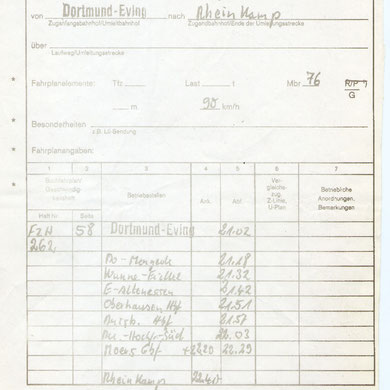 von Dortmund-Eving nach Rhein Kamp
Zuganfangsbahnhof/Umleitbahnhof Zugendbahnhof/Ende der Umleitungsstrecke
über
Laufweg/Umleitungsstrecke
* Fahrplanelemente: Tfz Last t Mbr 76 R/P
G
m. 90 km/h
* Besonderheiten
z.B. Lü-Sendung
* Fahrplanangaben:
1 2 3 4 5 6 7
* Betriebsstellen Ank. Abf. Vergleichszug, Z-Linie, U-Plan Betriebliche Anordnungen, Bemerkungen
Heft Nr Seite
FzH 58 Dortmund-Eving 21.02
262
Do-Mengede 21.18
Wanne-Eickel 21.32
E-Altenessen 21.42
Oberhausen Hbf 21.51
Duisb. Hbf 21.57
Du.-Hochf. Süd 22.03
Moers Gbf +22.20 22.29
Rhein Kamp